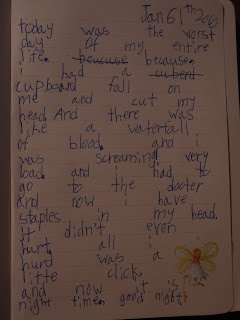 Jan 6th
today was the worst
day of my entire
life. becuse because.
i had a cuberd
cupboard fall on
me and cut my
head. And there was
like a waterfall
of blood. and i
was screaming very
load. and had to
go to the docter
and now i have
staples in my head.
it didn't even
hurt. all i
hurd was a
litte click.
and now it is
night time. good night!